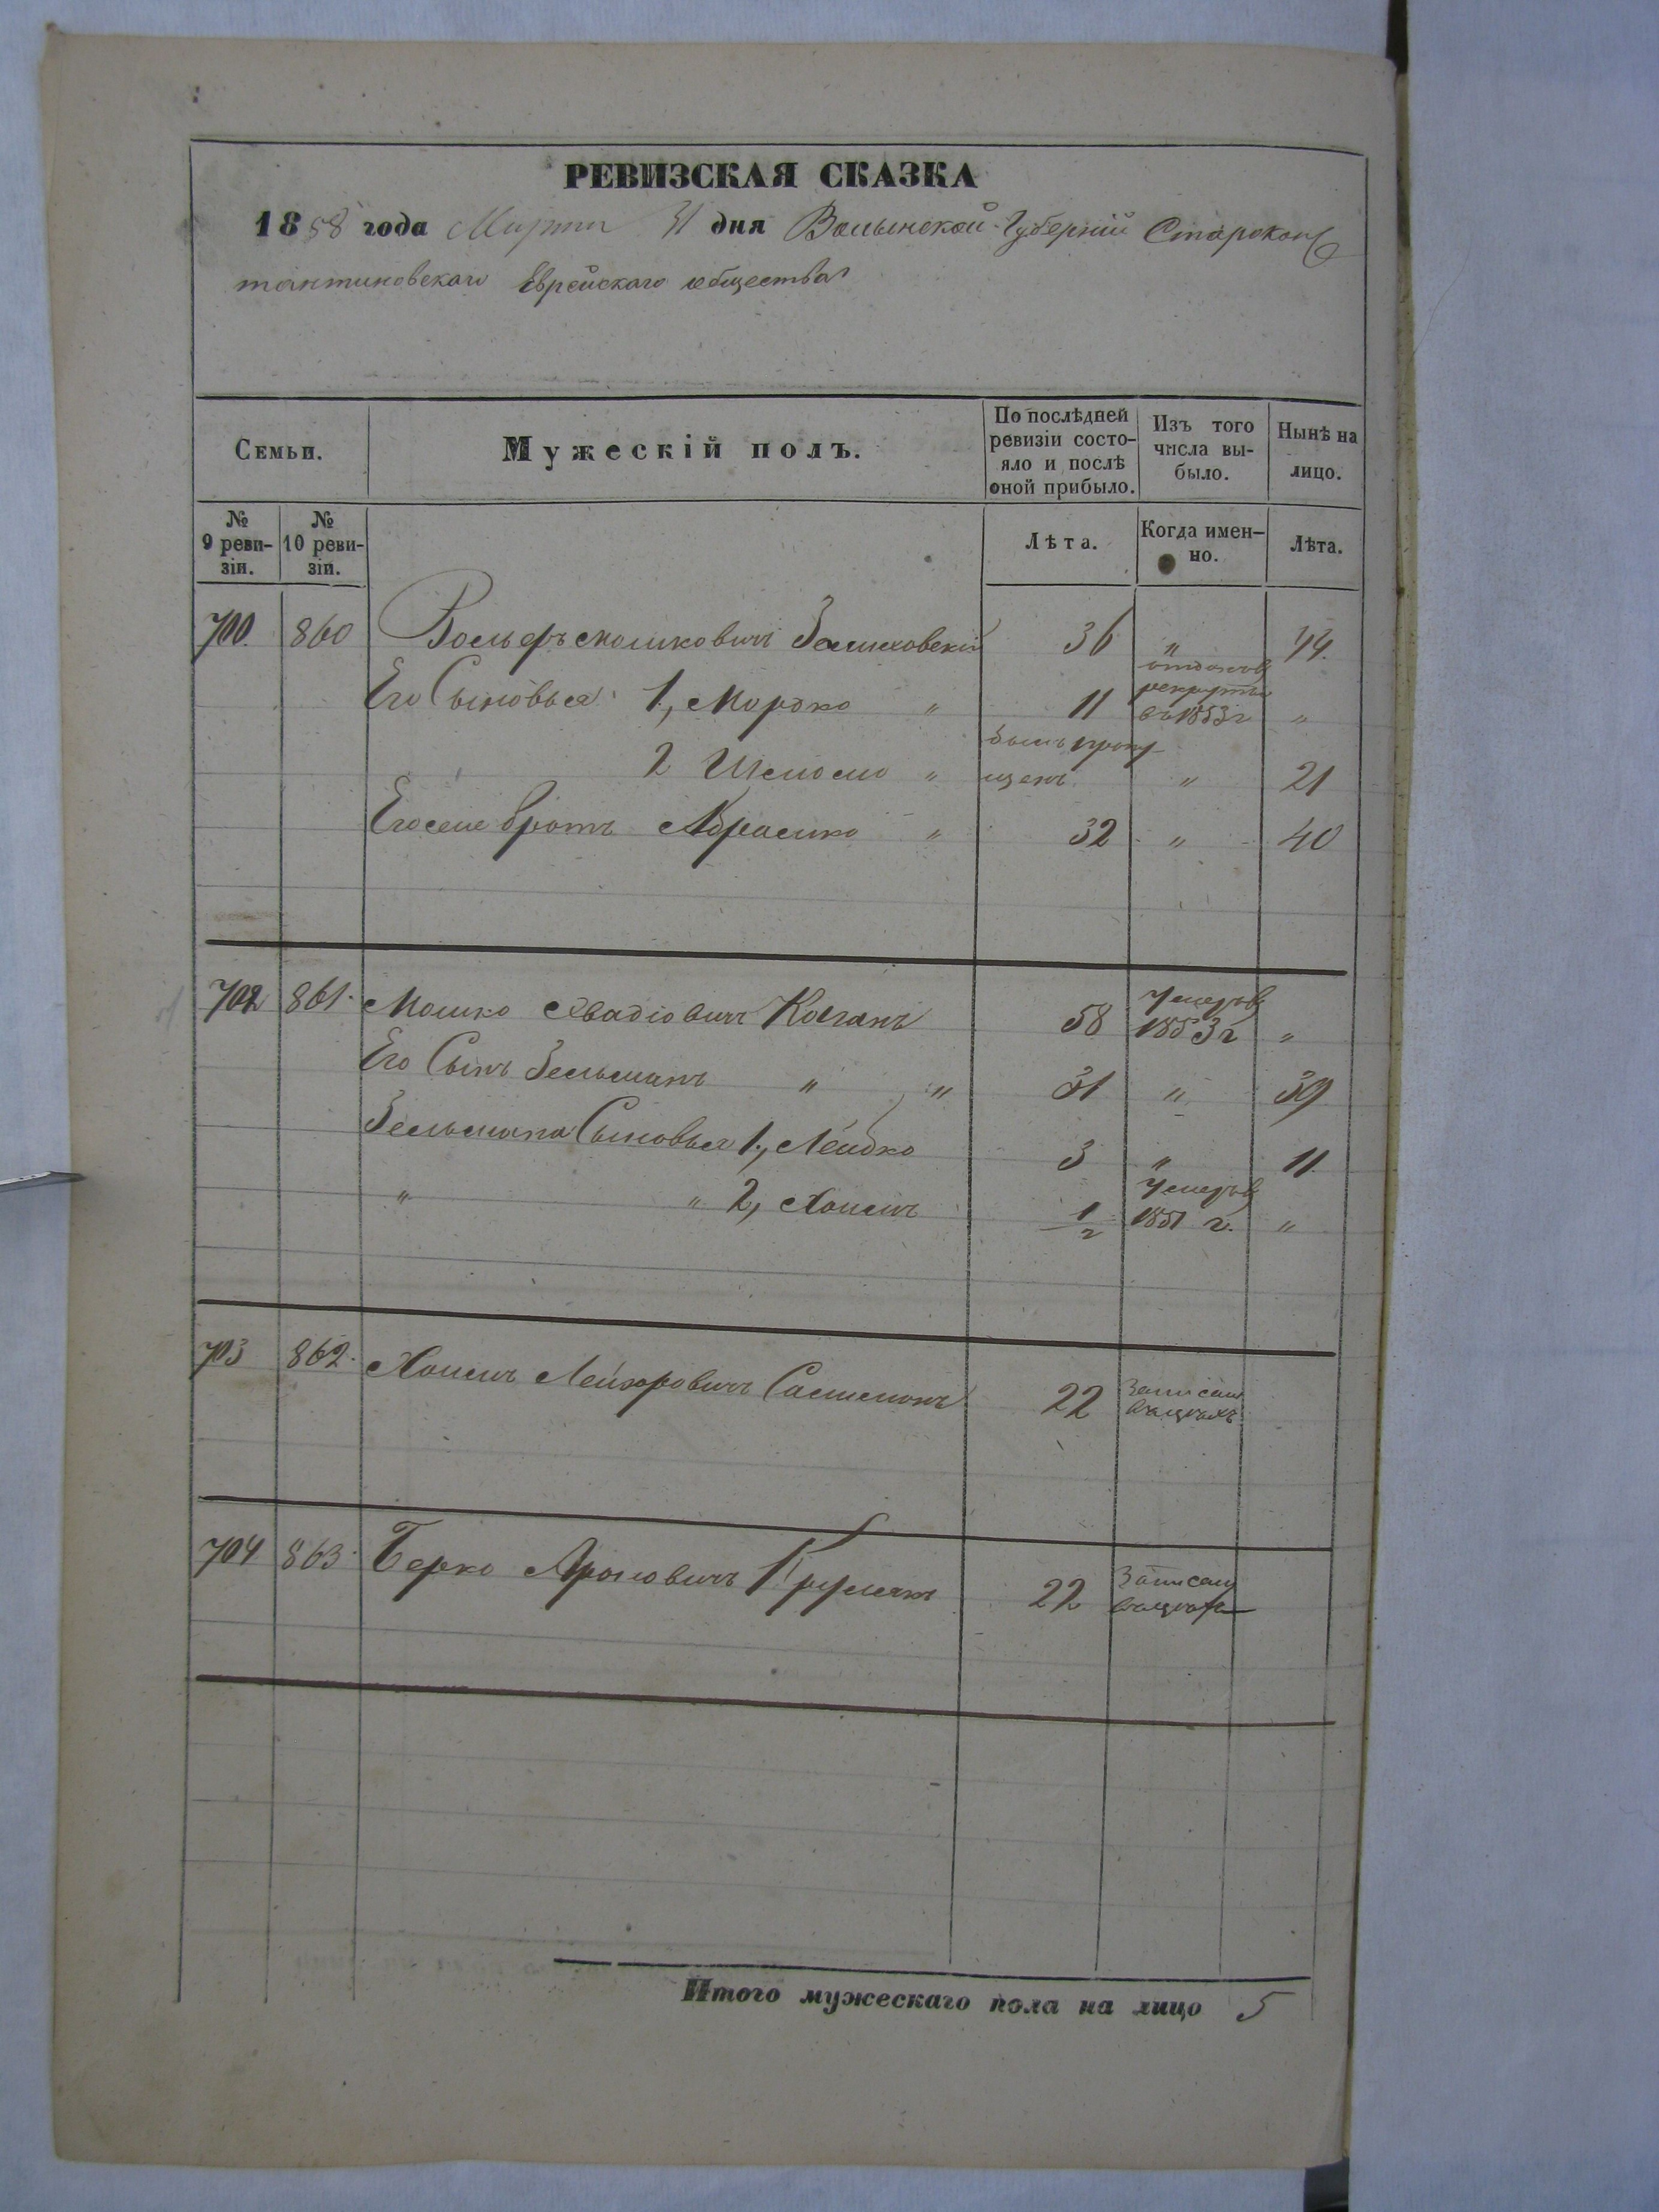 РЕВИЗСКАЯ СКАЗКА
1858 года Марта 31 дня Волынской Губерніи Старокон
тантиновскаго Еврейскаго общества
Семьи.
Мужескій полъ.
По послѣдней ревизіи состо-
яло и послѣ оной прибыло.
Изъ того числа вы-
было.
Нынѣ на лицо.
№ 9 реви-
зіи.
№ 10 реви-
зіи.
Лѣта.
Когда имен-
но.
Лѣта.
700. 860 Вольфъ Мошковичъ 36 " 44.
Его Сыновья 1, Мордко " 11 рекруты въ 1853 г "
2 Шлома " былъ пропу-
щенъ " 21
Его же братъ Абрамко " 32 " 40
702 861. Мошко Овадіовичъ Коганъ 58 Умеръ въ 1853 г "
Его Сынъ Зельманъ " " 31 " 39
Зельмана Сыновья 1, Лейбко 3 " 11
" " 2, Хаимъ 1/2 Умеръ въ 1851 г. "
703 862. Хаимъ 22 Записан
704 863. Берко Ароновичъ 22 Записан
Итого мужескаго пола на лицо 5